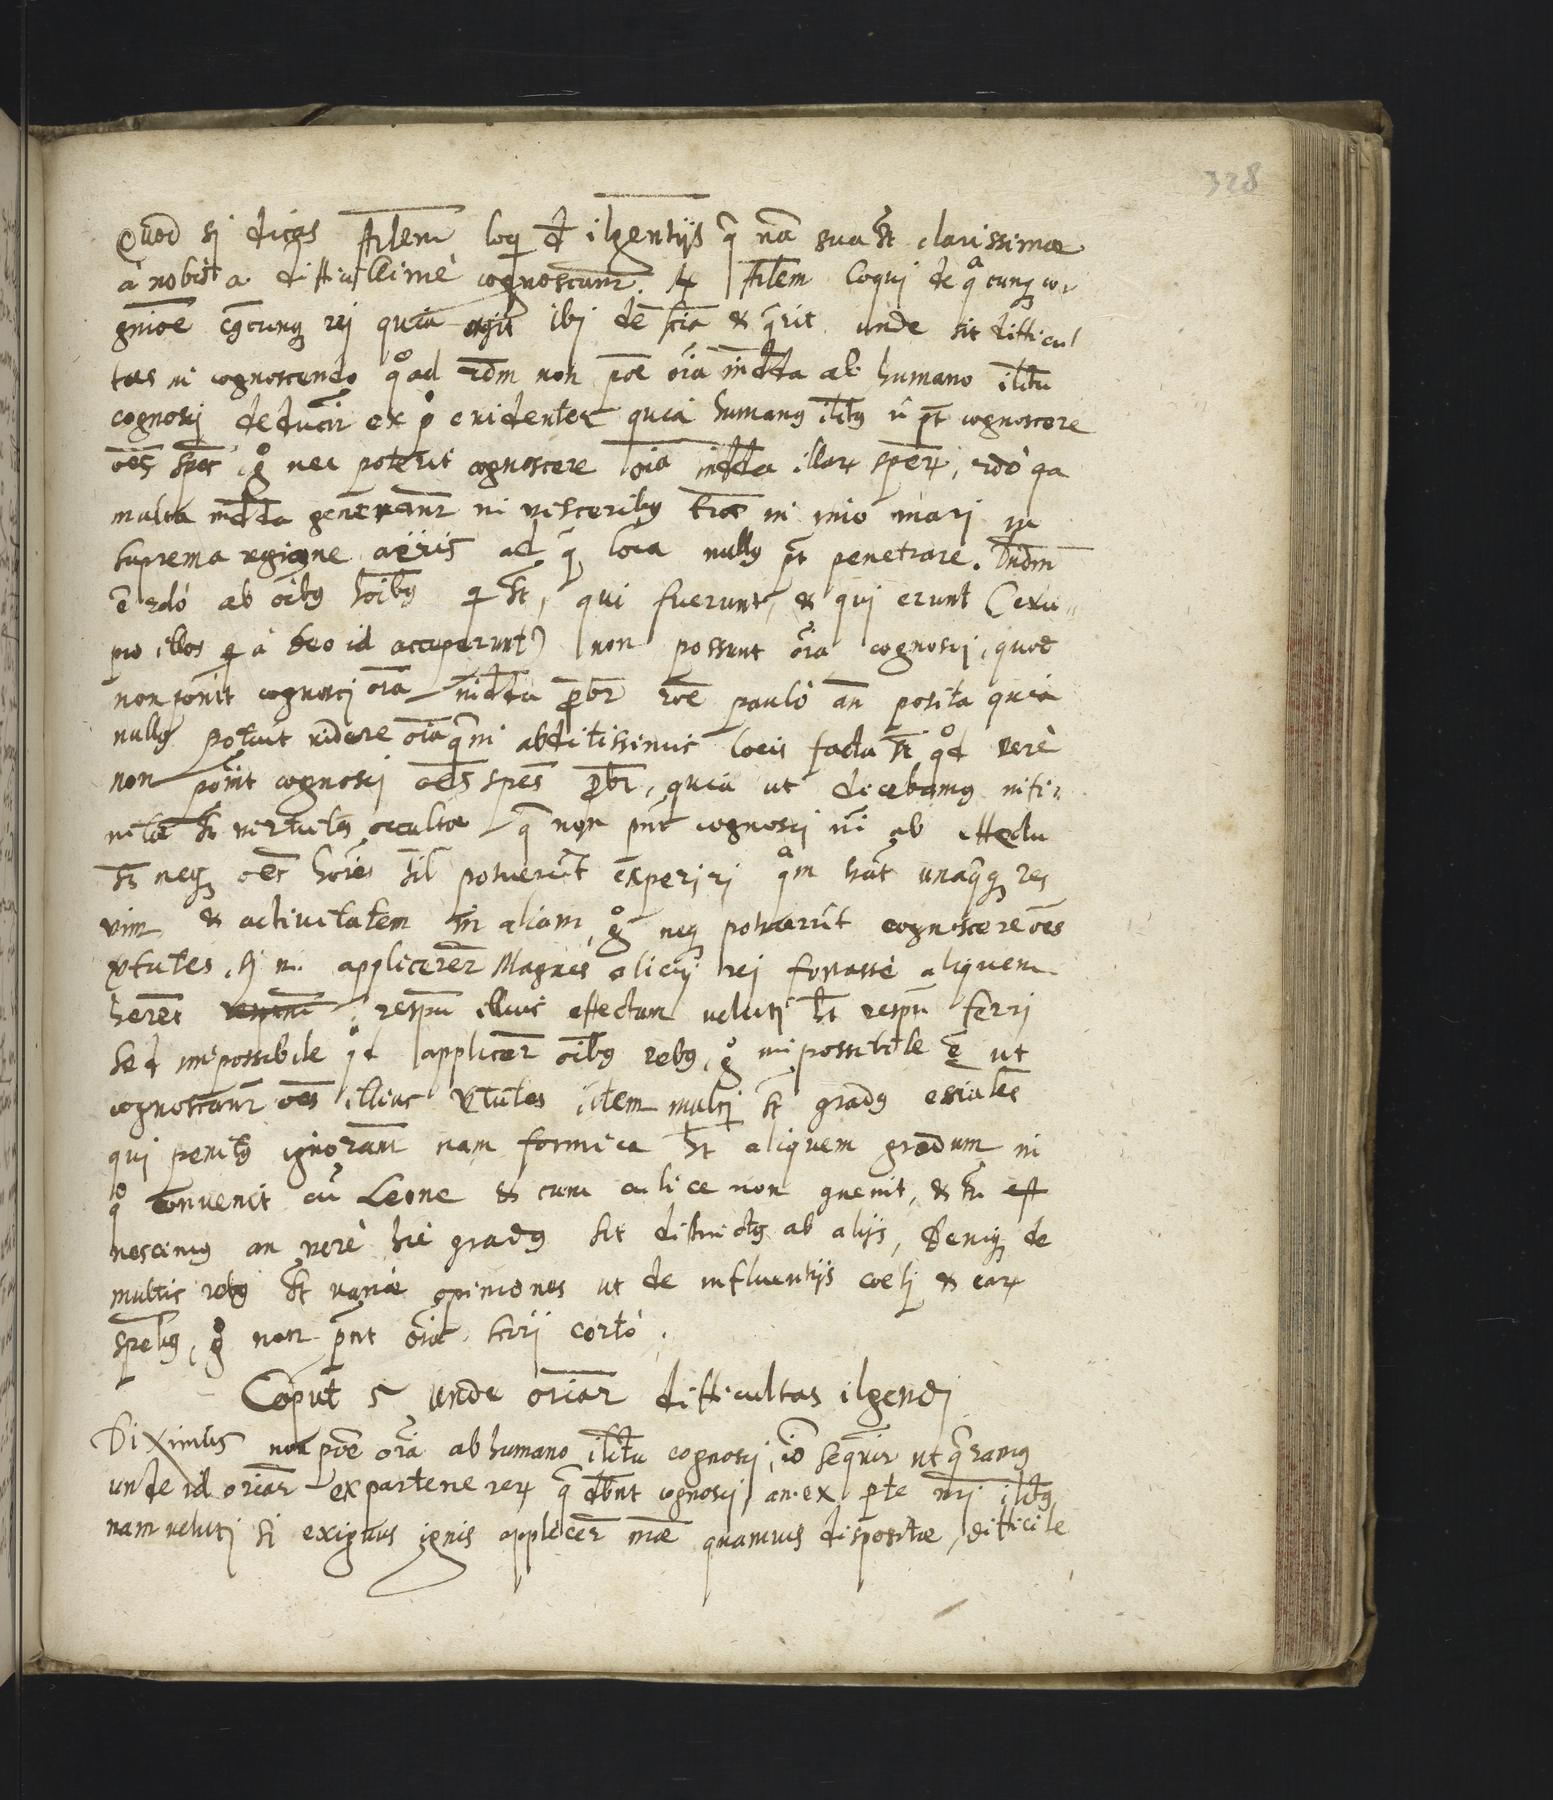 328
Quod si dicas Arlem loq de ilgentijs q̃ na sua st clarissimæ
à nobis a difficillimè cognoscunr. Arlem loqui de qacunq co
gnioe cũcunq rej quia agit ibj de scia & q̃rit unde sit difficul
tas in cognoscendo qo ad 2dm non põe oia indda ab humano iltu
cognoscj deducir ex po evidenter quia humanq iltq ñ pt cognoscere
oẽs spes, go nec poterit cognoscere oia indda illar sper, 2do qa
multa indda generanr in visceribq træ in imo marj in
suprema regione aëris ad q̃ loca nullq pt penetrare.
ẽ 2dò ab oibq hoibq q st, qui fuerunt, & qui erunt (exci
pio illos q à Deo id acceperunt) non possunt oia cognoscj, quod
non pont cognoscj oia indda probr roẽ paulò an posita quia
nullq potuit videre oia q̃ in abditissimis locis facta st qod verè
non pont cognoscj oẽs spes probr, quia ut dicebamq infi
nitæ st virtutes occultæ q̃ non pnt cognoscj ni ab effectu
sz neq oẽs hoies sil potuerũt experirj qam hat unaq̃q res
vim & activitatem in aliam, go neq potuerũt cognoscere oẽs
vtutes, sj n. applicerer Magnes alicuj rej fortassè aliquem
heret respu illius effectum velutj ht respu ferrj
sed impossibile qd applicer oibq rebq, go impossibile ẽ ut
cognoscanr oẽs illius vtutes item multj st gradq esiales
qui penitq ignoranr nam formica ht aliquem gradum in
qo convenit cũ Leone & cum culice non gvenit, & tn
nescimq an verè hic gradq sit distinctq ab alijs, Deniq de
multis rebq st variæ opiniones ut de influentijs coelj & ear
spebq, go non pnt oia scirj certò.
Caput 5 unde oriar difficultas ilgendj
Diximus non põe oia ab humano iltu cognoscj, iõ sequir ut q̃ramq
unde id oriar ex parte ne rer q̃ dbnt cognoscj, an ex pte nrj iltq
nam velutj si exiguus ignis applicer mæ quamvis dispositæ, difficile